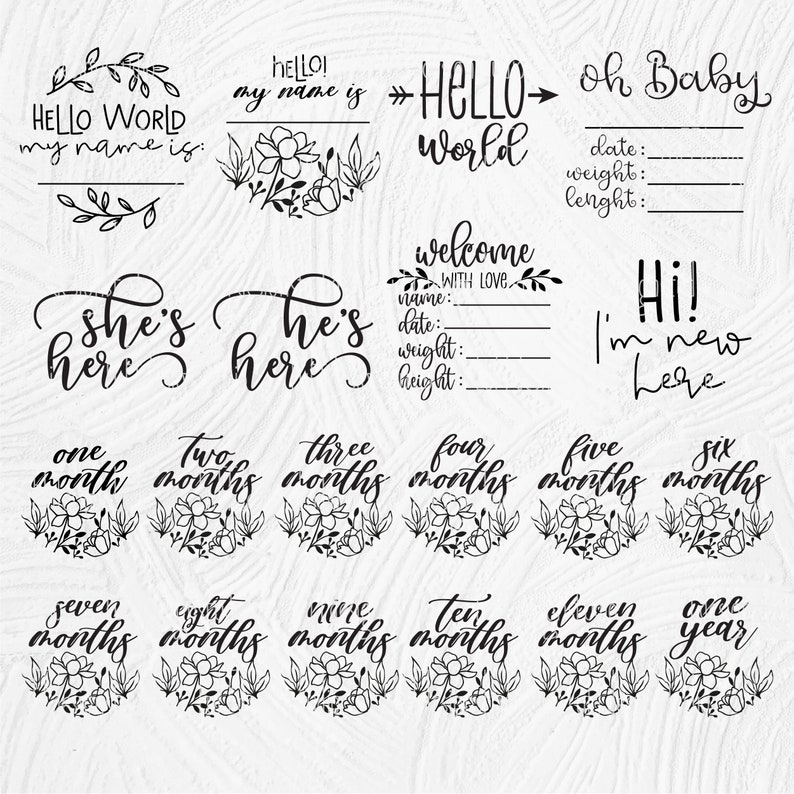 HELLO WORLD
my name is:
hello!
my name is
HELLO
world
oh Baby
date:
weight:
lenght:
she's
here
he's
here
welcome
WITH LOVE
name:
date:
weight:
height:
Hi!
I'm new
here
one
month
Two
months
three
months
four
months
five
months
six
months
seven
months
eight
months
nine
months
Ten
months
eleven
months
one
year